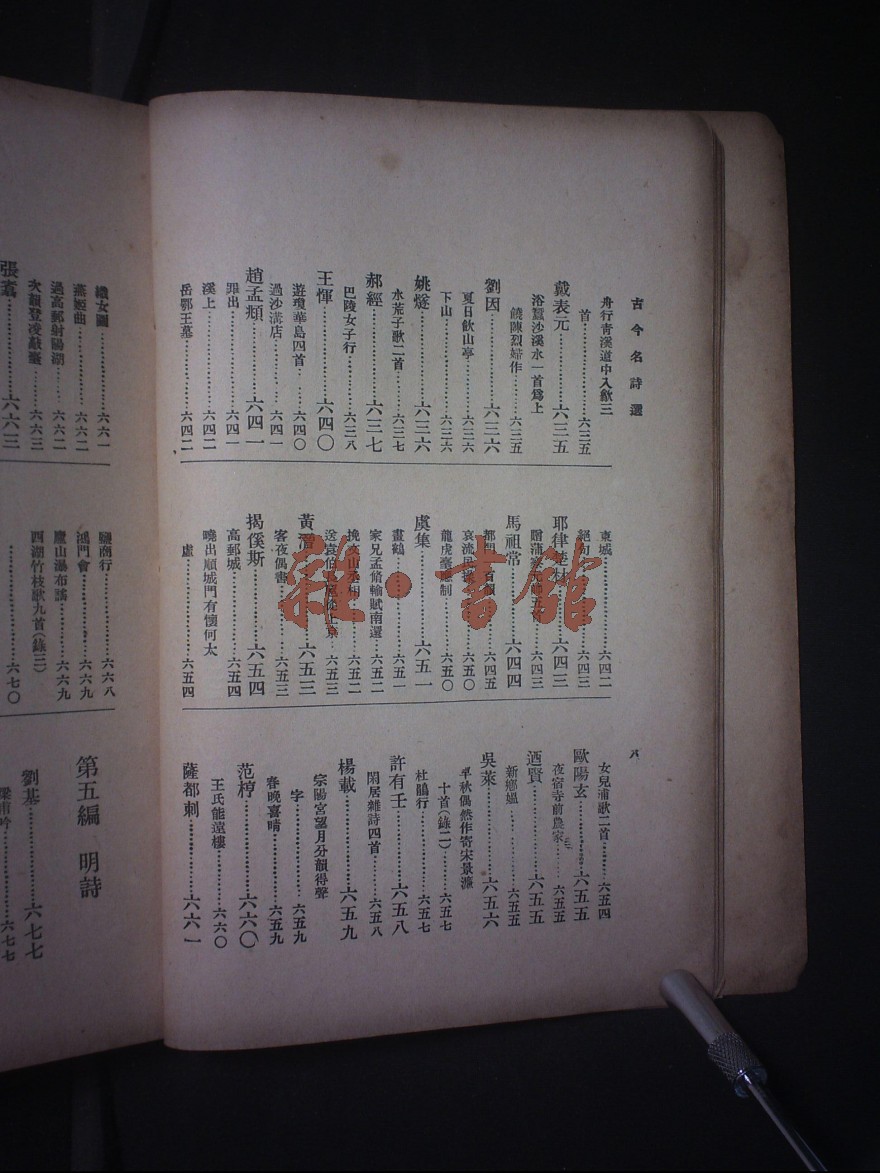 古今名詩選
舟行青溪道中入歙三
首………六三五
戴表元………六三五
浴蠶沙溪水一首爲上
饒陳烈婦作………六三五
劉因………六三六
夏日飲山亭………六三六
下山………六三六
姚燧………六三六
水荒子歌二首………六三七
郝經………六三七
巴陵女子行………六三八
王惲………六四〇
遊瓊華島四首………六四〇
過沙溝店………六四一
趙孟頫………六四一
罪出………六四一
溪上………六四二
岳鄂王墓………六四二
東城………六四二
絕句………六四三
耶律楚材………六四三
六四三
馬祖常………六四四
六四五
哀流民操………六五〇
龍虎臺應制………六五〇
虞集………六五一
畫鶴………六五一
家兄孟脩輸賦南還………六五二
挽文山丞相………六五二
送袁伯長扈從上京………六五三
黃溍………六五三
客夜偶書………六五三
揭傒斯………六五四
高郵城………六五四
曉出順城門有懷何太
虛………六五四
八
女兒浦歌二首………六五四
歐陽玄………六五五
夜宿寺前農家………六五五
迺賢………六五五
新鄉媼………六五五
吳萊………六五六
早秋偶然作寄宋景濂
十首(錄二)………六五七
杜鵑行………六五七
許有壬………六五八
閑居雜詩四首………六五八
楊載………六五九
宗陽宮望月分韻得聲
字………六五九
春晚喜晴………六五九
范梈………六六〇
王氏能遠樓………六六〇
薩都剌………六六一
織女圖………六六一
燕姬曲………六六二
過高郵射陽湖………六六二
次韻登凌歊臺………六六三
張翥………六六三
鹽商行………六六八
鴻門會………六六九
廬山瀑布謠………六六九
西湖竹枝歌九首(錄三)
………六七〇
第五編 明詩
劉基………六七七
梁甫吟………六七七
雜·書館